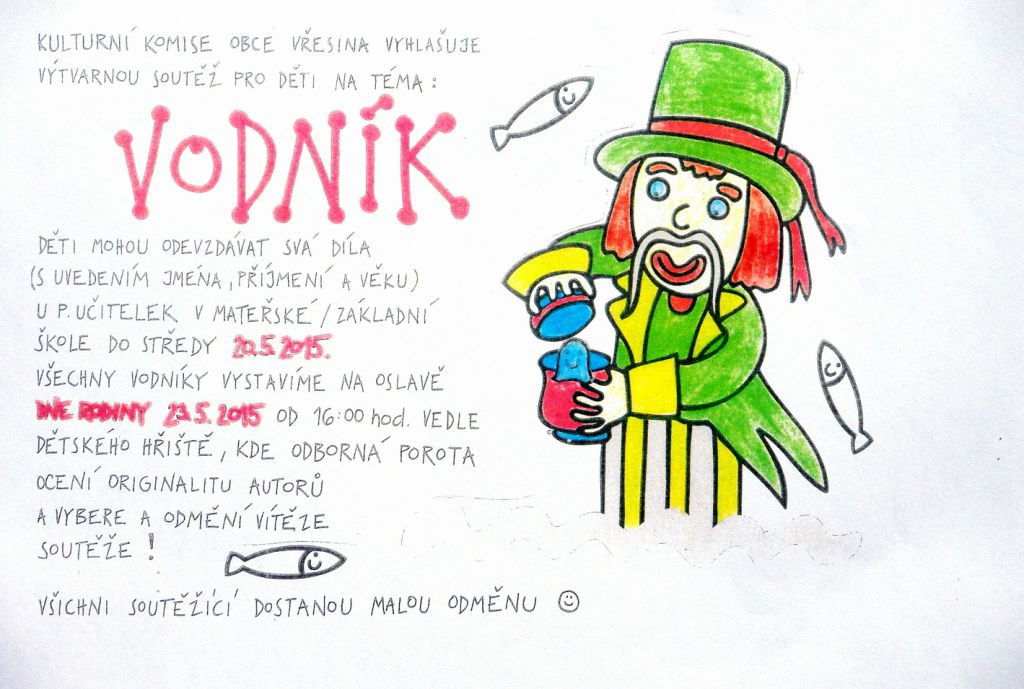 KULTURNÍ KOMISE OBCE VŘESINA VYHLAŠUJE
VÝTVARNOU SOUTĚŽ PRO DĚTI NA TÉMA:
VODNÍK
DĚTI MOHOU ODEVZDÁVAT SVÁ DÍLA
(S UVEDENÍM JMÉNA, PŘÍJMENÍ A VĚKU)
U P. UČITELEK V MATEŘSKÉ / ZÁKLADNÍ
ŠKOLE DO STŘEDY 20.5.2015.
VŠECHNY VODNÍKY VYSTAVÍME NA OSLAVĚ
DNE RODINY 23.5.2015 OD 16:00 hod. VEDLE
DĚTSKÉHO HŘIŠTĚ, KDE ODBORNÁ POROTA
OCENÍ ORIGINALITU AUTORŮ
A VYBERE A ODMĚNÍ VÍTĚZE
SOUTĚŽE!
VŠICHNI SOUTĚŽÍCÍ DOSTANOU MALOU ODMĚNU ☺